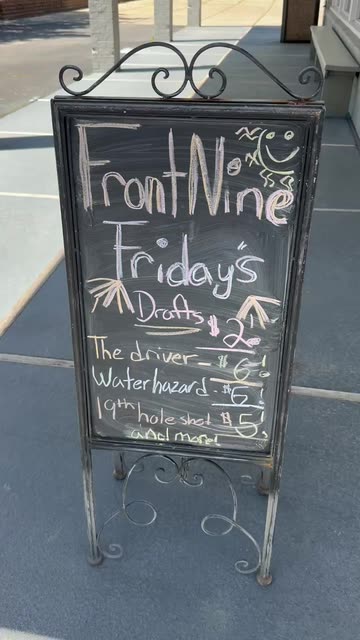 Front Nine
Friday's
Drafts $2!
The driver - $6!
Water hazard - $6!
19th hole shot $5!
and more!